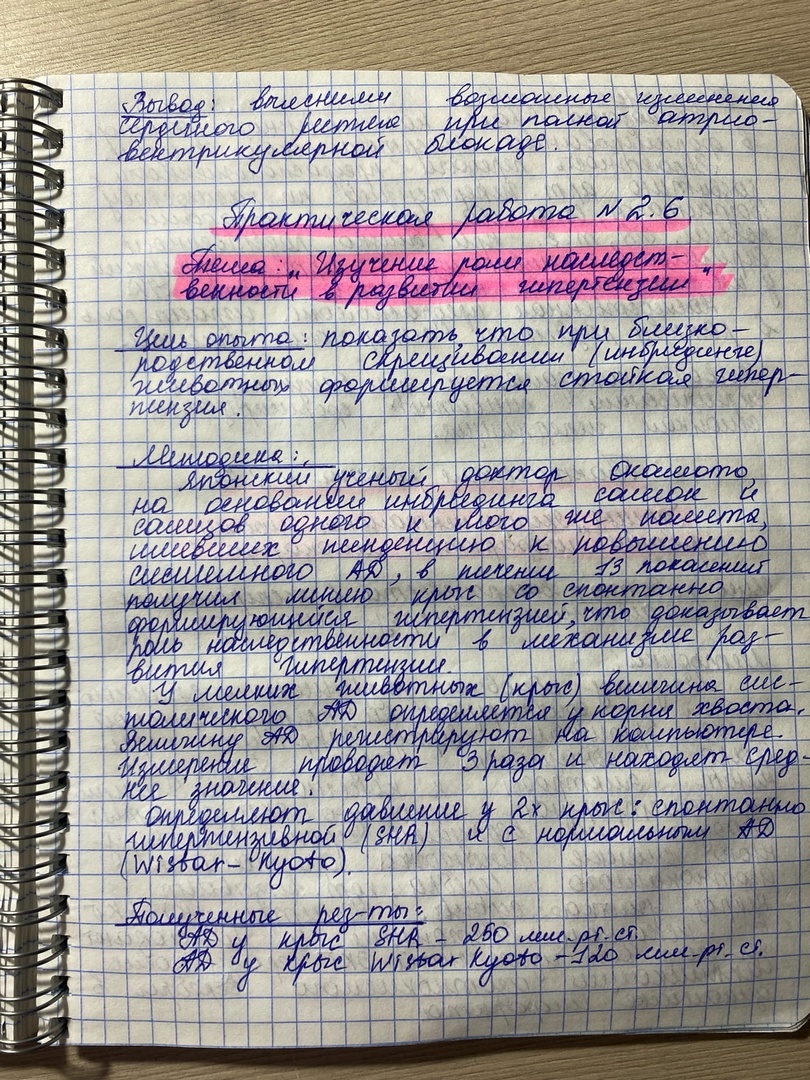 Вывод: выяснили возможные изменения
сердечного ритма при полной атрио-
вентрикулярной блокаде.
Практическая работа N 2.6
Тема: "Изучение роли наследст-
венности в развитии гипертензии"
Цель опыта: показать, что при близко-
родственном скрещивании (инбридинге)
животных формируется стойкая гипер-
тензия.
Методика:
Японский ученый доктор Окамото
на основании инбридинга самок и
самцов одного и того же помета,
имевших тенденцию к повышению
системного АД, в течении 13 поколений
получил линию крыс со спонтанно
формирующейся гипертензией, что доказывает
роль наследственности в механизме раз-
вития гипертензии.
У мелких животных (крыс) величина сис-
толического АД определяется у корня хвоста.
Величину АД регистрируют на компьютере.
Измерения проводят 3 раза и находят сред-
нее значение.
Определяют давление у 2х крыс: спонтанно
гипертензивной (SHR) и с нормальным АД
(Wistar-Kyoto).
Полученные рез-ты:
АД у крыс SHR - 250 мм.рт.ст.
АД у крыс Wistar Kyoto - 120 мм.рт.ст.